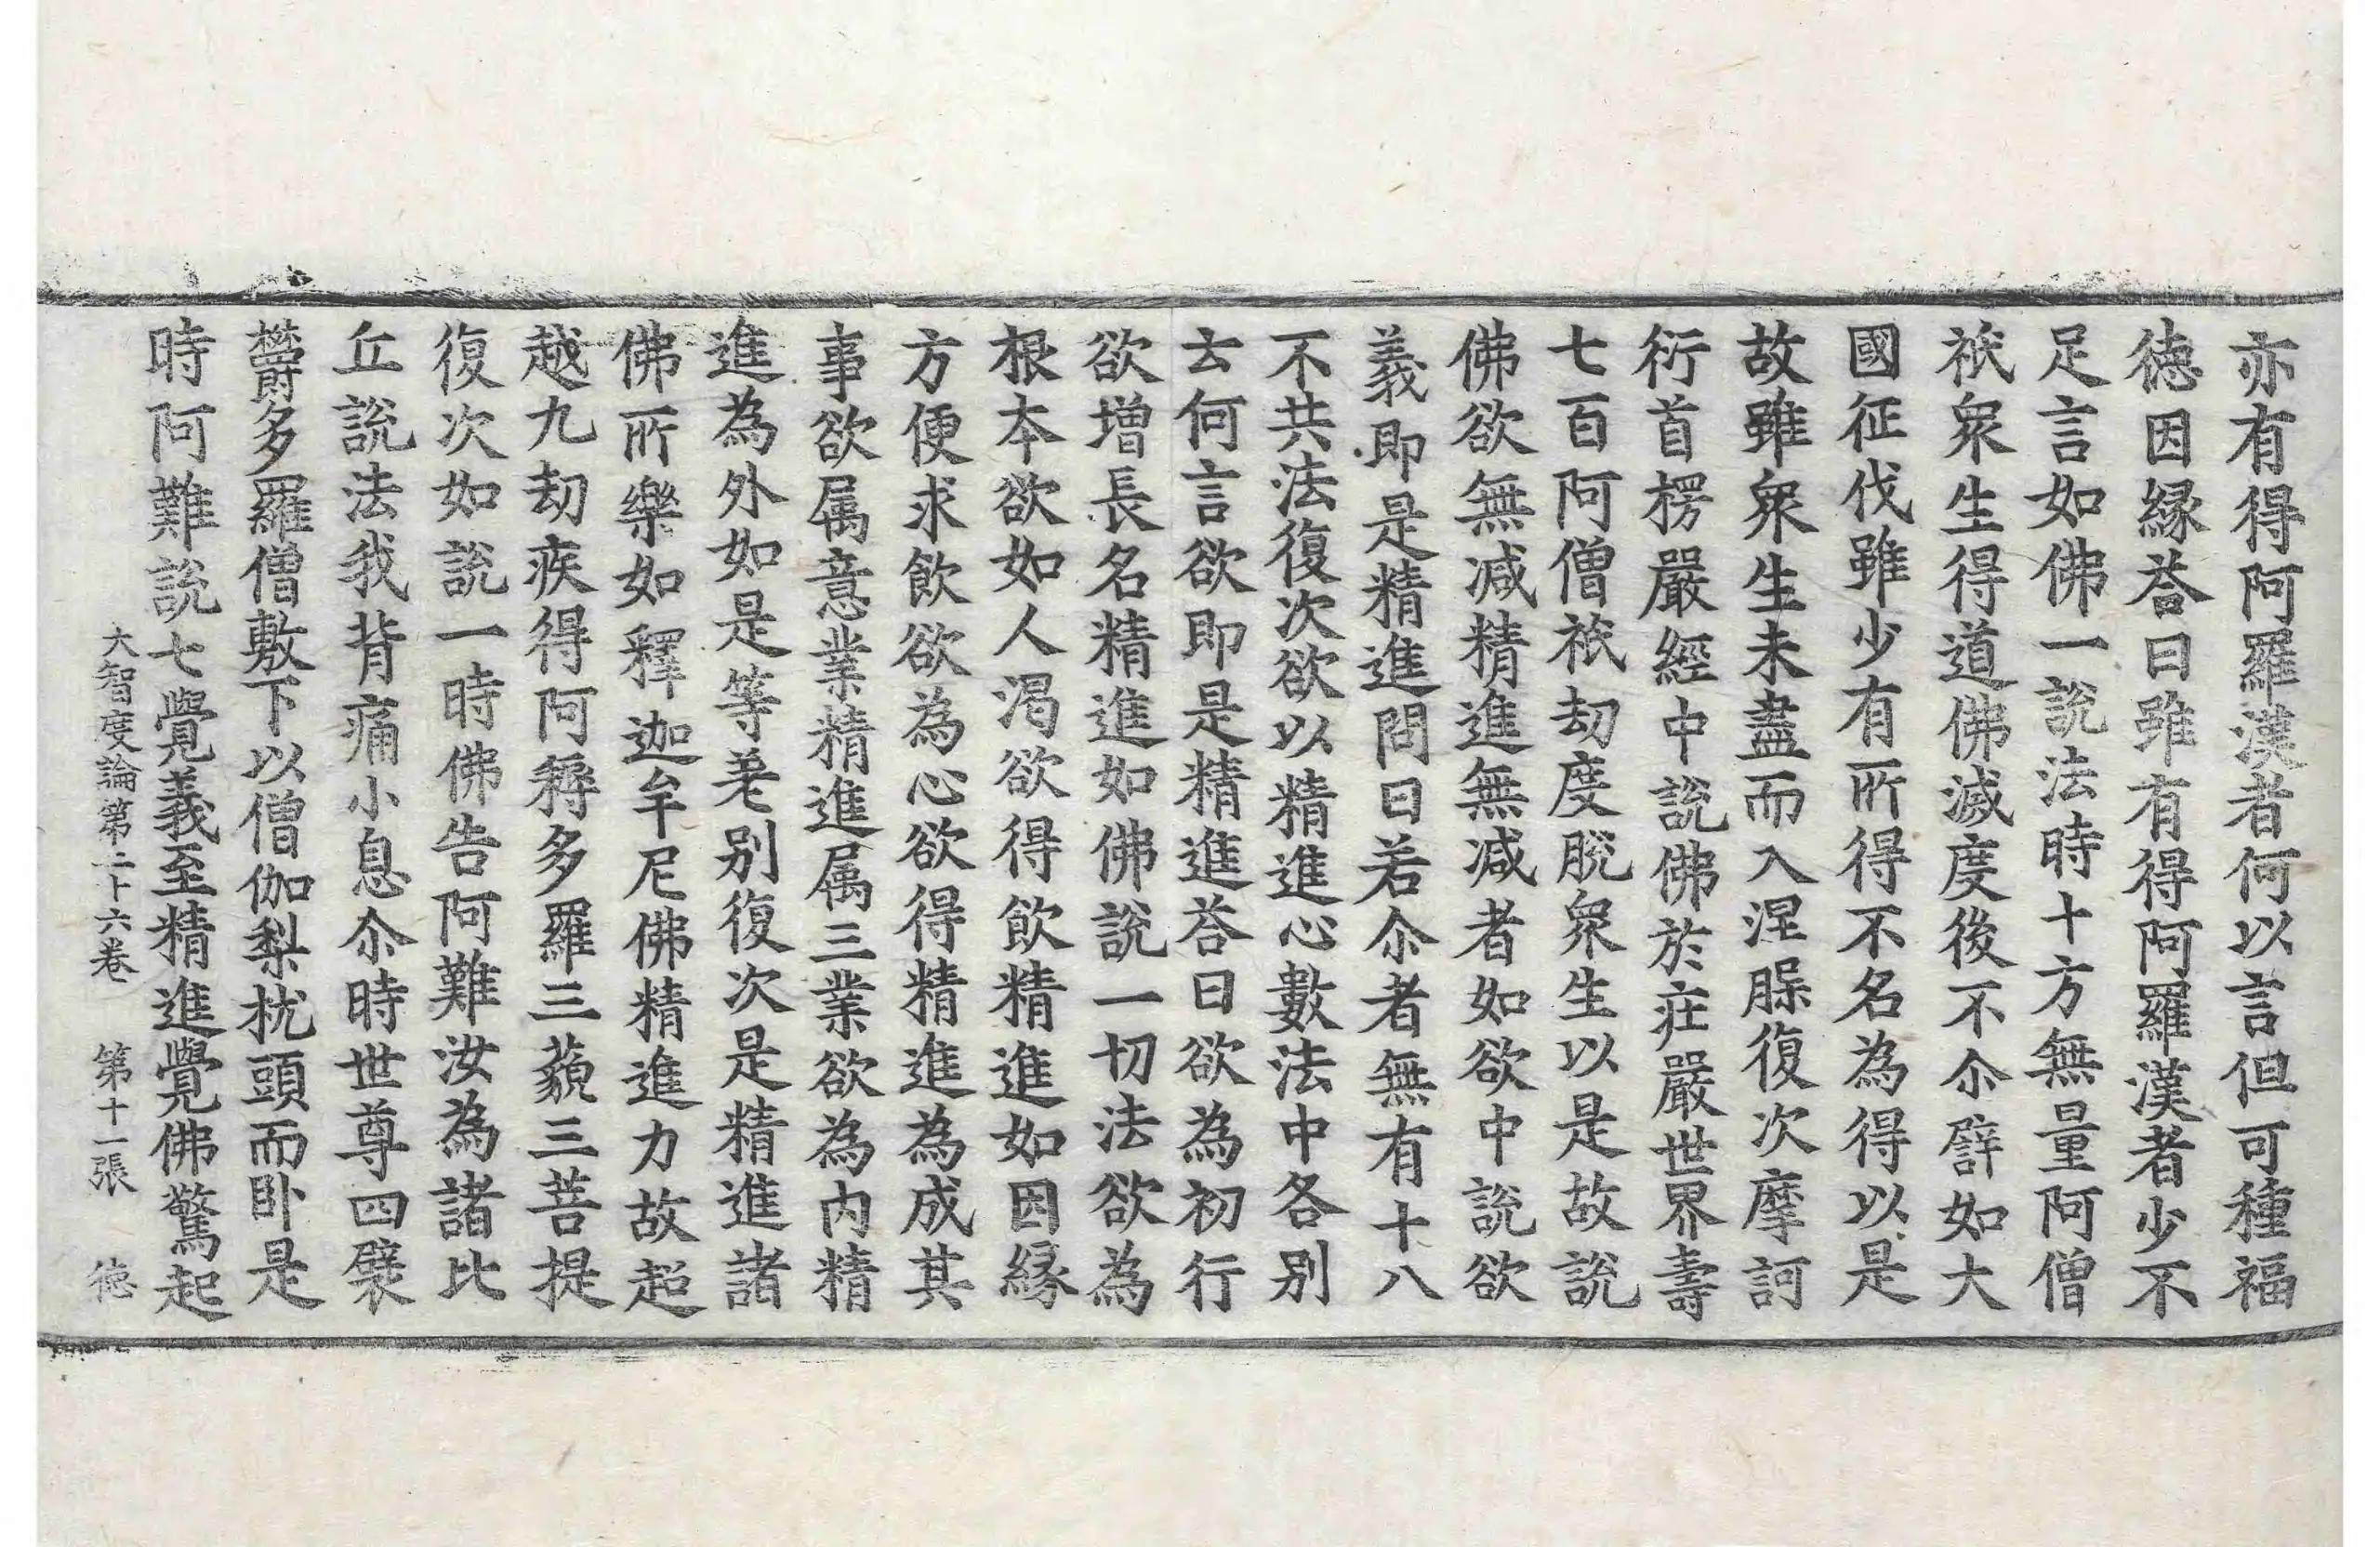 亦有得阿羅漢者何以言但可種福
徳因縁荅曰雖有得阿羅漢者少不
足言如佛一說法時十方無量阿僧
祇衆生得道佛滅度後不尒譬如大
國征伐雖少有所得不名為得以是
故雖衆生未盡而入涅槃復次摩訶
衍首楞嚴經中說佛於莊嚴世界壽
七百阿僧祇劫度脫衆生以是故說
佛欲無減精進無減者如欲中說欲
義即是精進問曰若尒者無有十八
不共法復次欲以精進心數法中各別
云何言欲即是精進荅曰欲為初行
欲增長名精進如佛說一切法欲為
根本欲如人渴欲得飲精進如因縁
方便求飲欲為心欲得精進為成其
事欲属意業精進属三業欲為內精
進為外如是等差別復次是精進諸
佛所樂如釋迦牟尼佛精進力故超
越九劫疾得阿耨多羅三藐三菩提
復次如說一時佛告阿難汝為諸比
丘說法我背痛小息尒時世尊四襞
欝多羅僧敷下以僧伽梨枕頭而卧是
時阿難說七覺義至精進覺佛驚起
大智度論第二十六卷 第十一張 徳